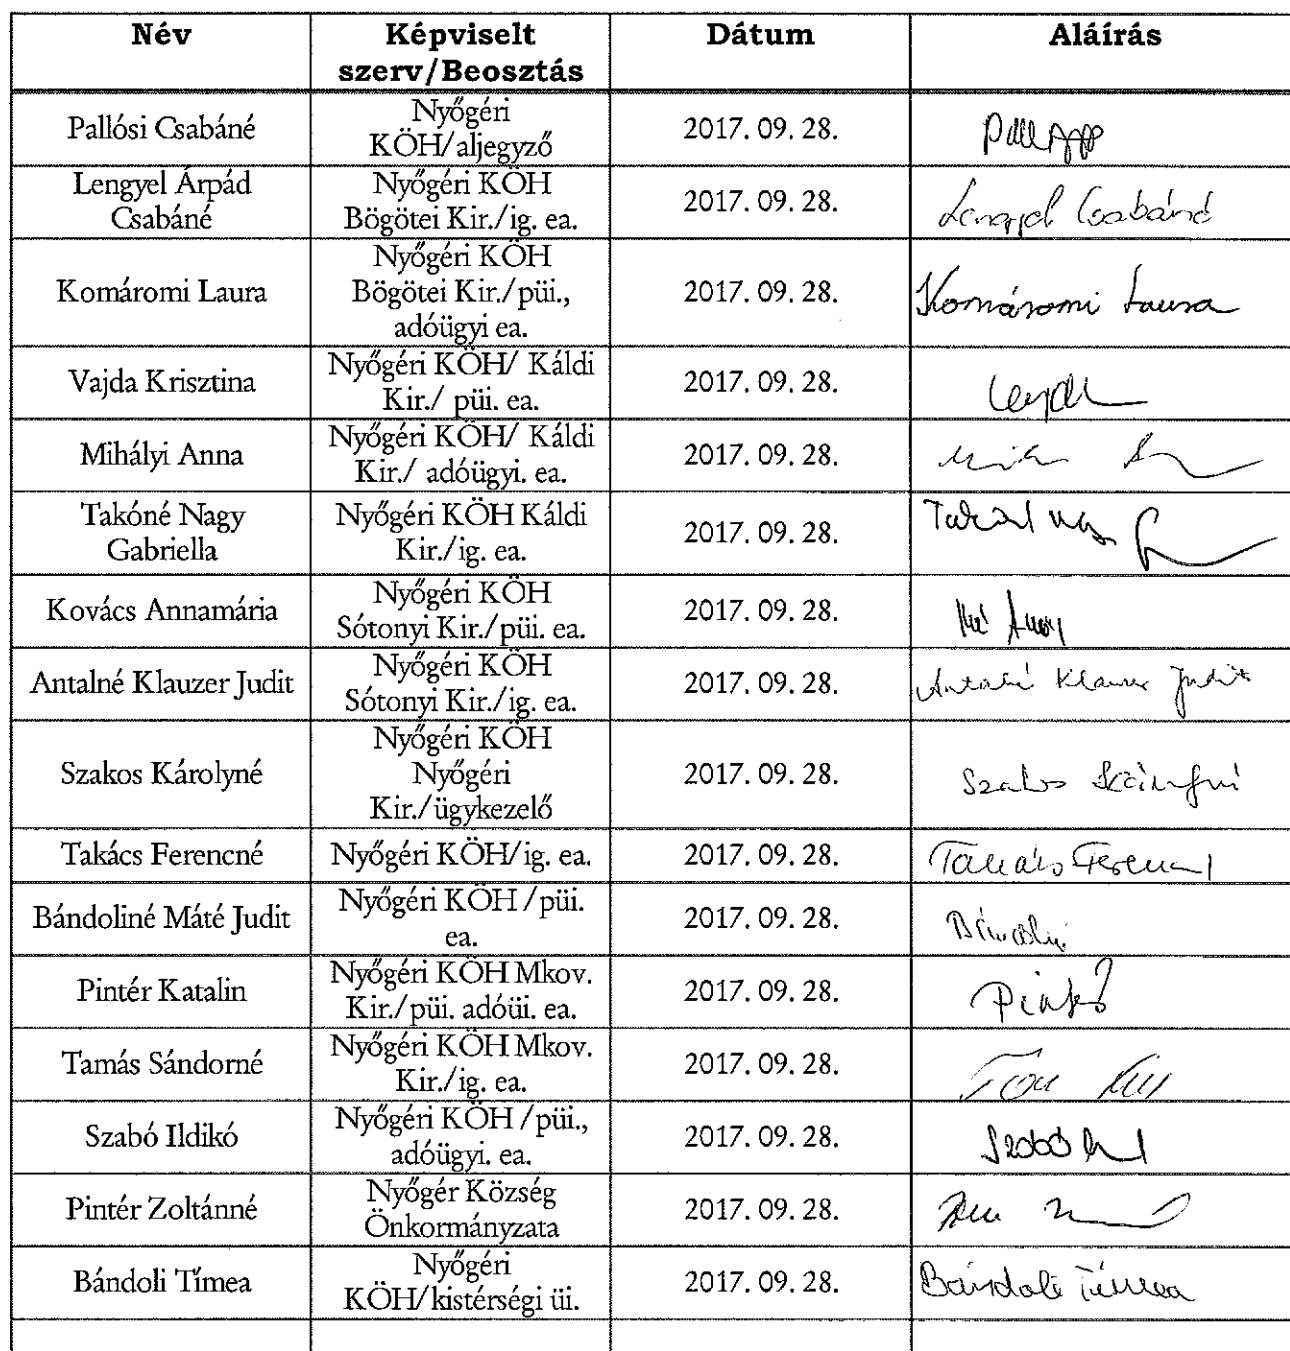 Név
Képviselt
szerv/Beosztás
Dátum
Aláírás
Pallósi Csabáné
Nyőgéri
KÖH/aljegyző
2017. 09. 28.
Lengyel Árpád
Csabáné
Nyőgéri KÖH
Bögötei Kir./ig. ea.
2017. 09. 28.
Lengyel Csabáné
Komáromi Laura
Nyőgéri KÖH
Bögötei Kir./püi.,
adóügyi ea.
2017. 09. 28.
Komáromi Laura
Vajda Krisztina
Nyőgéri KÖH/ Káldi
Kir./ püi. ea.
2017. 09. 28.
Mihályi Anna
Nyőgéri KÖH/ Káldi
Kir./ adóügyi. ea.
2017. 09. 28.
Takóné Nagy
Gabriella
Nyőgéri KÖH Káldi
Kir./ig. ea.
2017. 09. 28.
Kovács Annamária
Nyőgéri KÖH
Sótonyi Kir./püi. ea.
2017. 09. 28.
Antalné Klauzer Judit
Nyőgéri KÖH
Sótonyi Kir./ig. ea.
2017. 09. 28.
Antalné Klauzer Judit
Szakos Károlyné
Nyőgéri KÖH
Nyőgéri
Kir./ügykezelő
2017. 09. 28.
Szakos Károlyné
Takács Ferencné
Nyőgéri KÖH/ig. ea.
2017. 09. 28.
Takács Ferencné
Bándoliné Máté Judit
Nyőgéri KÖH /püi.
ea.
2017. 09. 28.
Pintér Katalin
Nyőgéri KÖH Mkov.
Kir./püi. adóüi. ea.
2017. 09. 28.
Tamás Sándorné
Nyőgéri KÖH Mkov.
Kir./ig. ea.
2017. 09. 28.
Szabó Ildikó
Nyőgéri KÖH /püi.,
adóügyi. ea.
2017. 09. 28.
Szabó
Pintér Zoltánné
Nyőgér Község
Önkormányzata
2017. 09. 28.
Bándoli Tímea
Nyőgéri
KÖH/kistérségi üi.
2017. 09. 28.
Bándoli Tímea